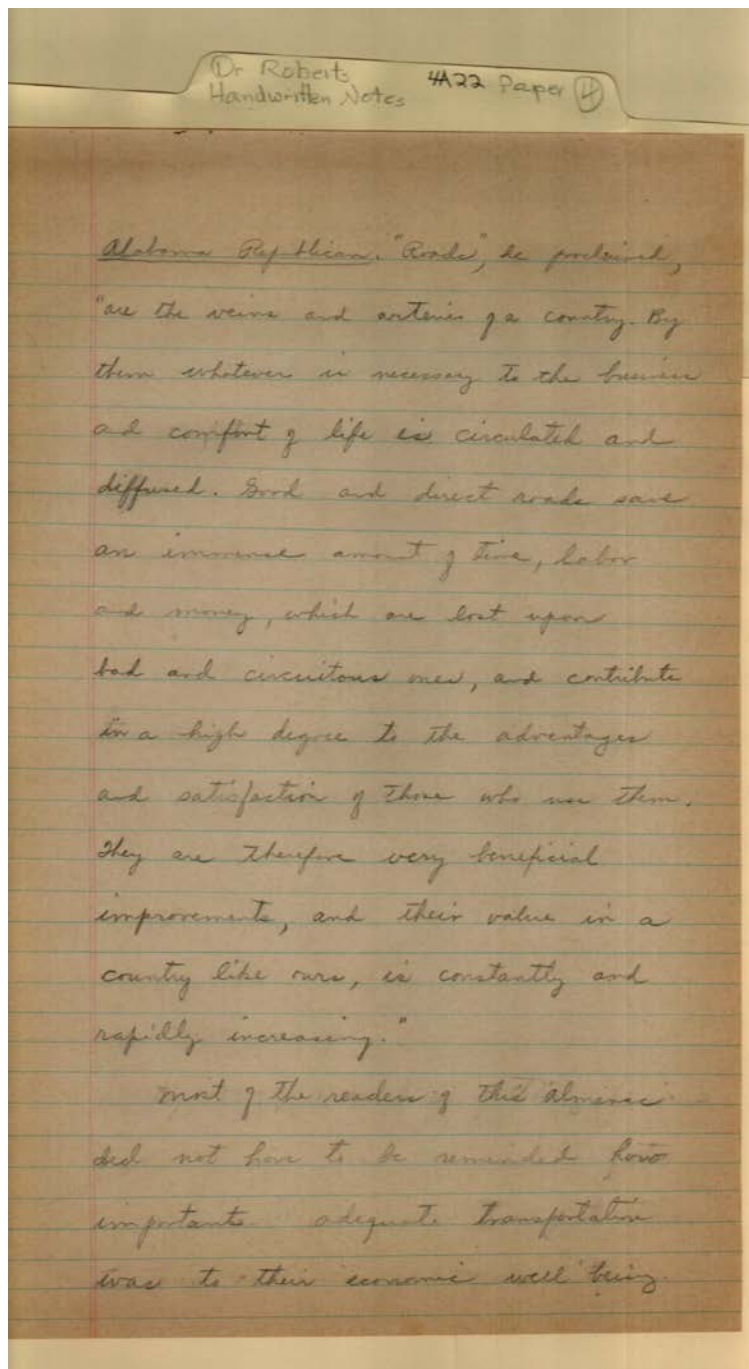 Dr Roberts
Handwritten Notes
4A22 Paper 4
Alabama Republican. "Roads", he proclaimed,
"are the veins and arteries of a country. By
them whatever is necessary to the business
and comfort of life is circulated and
diffused. Good and direct roads save
an immense amount of time, labor
and money, which are lost upon
bad and circuitous ones, and contribute
in a high degree to the advantages
and satisfaction of those who use them.
They are therefore very beneficial
improvements, and their value in a
country like ours, is constantly and
rapidly increasing."
Most of the readers of this almanac
did not have to be reminded how
important adequate transportation
was to their economic well being.